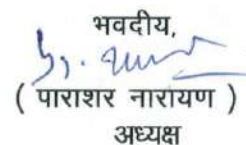 भवदीय,
( पाराशर नारायण )
अध्यक्ष